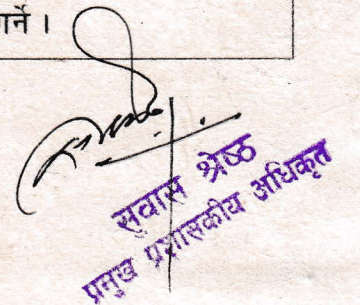 गर्ने ।
सुवास श्रेष्ठ
प्रमुख प्रशासकीय अधिकृत